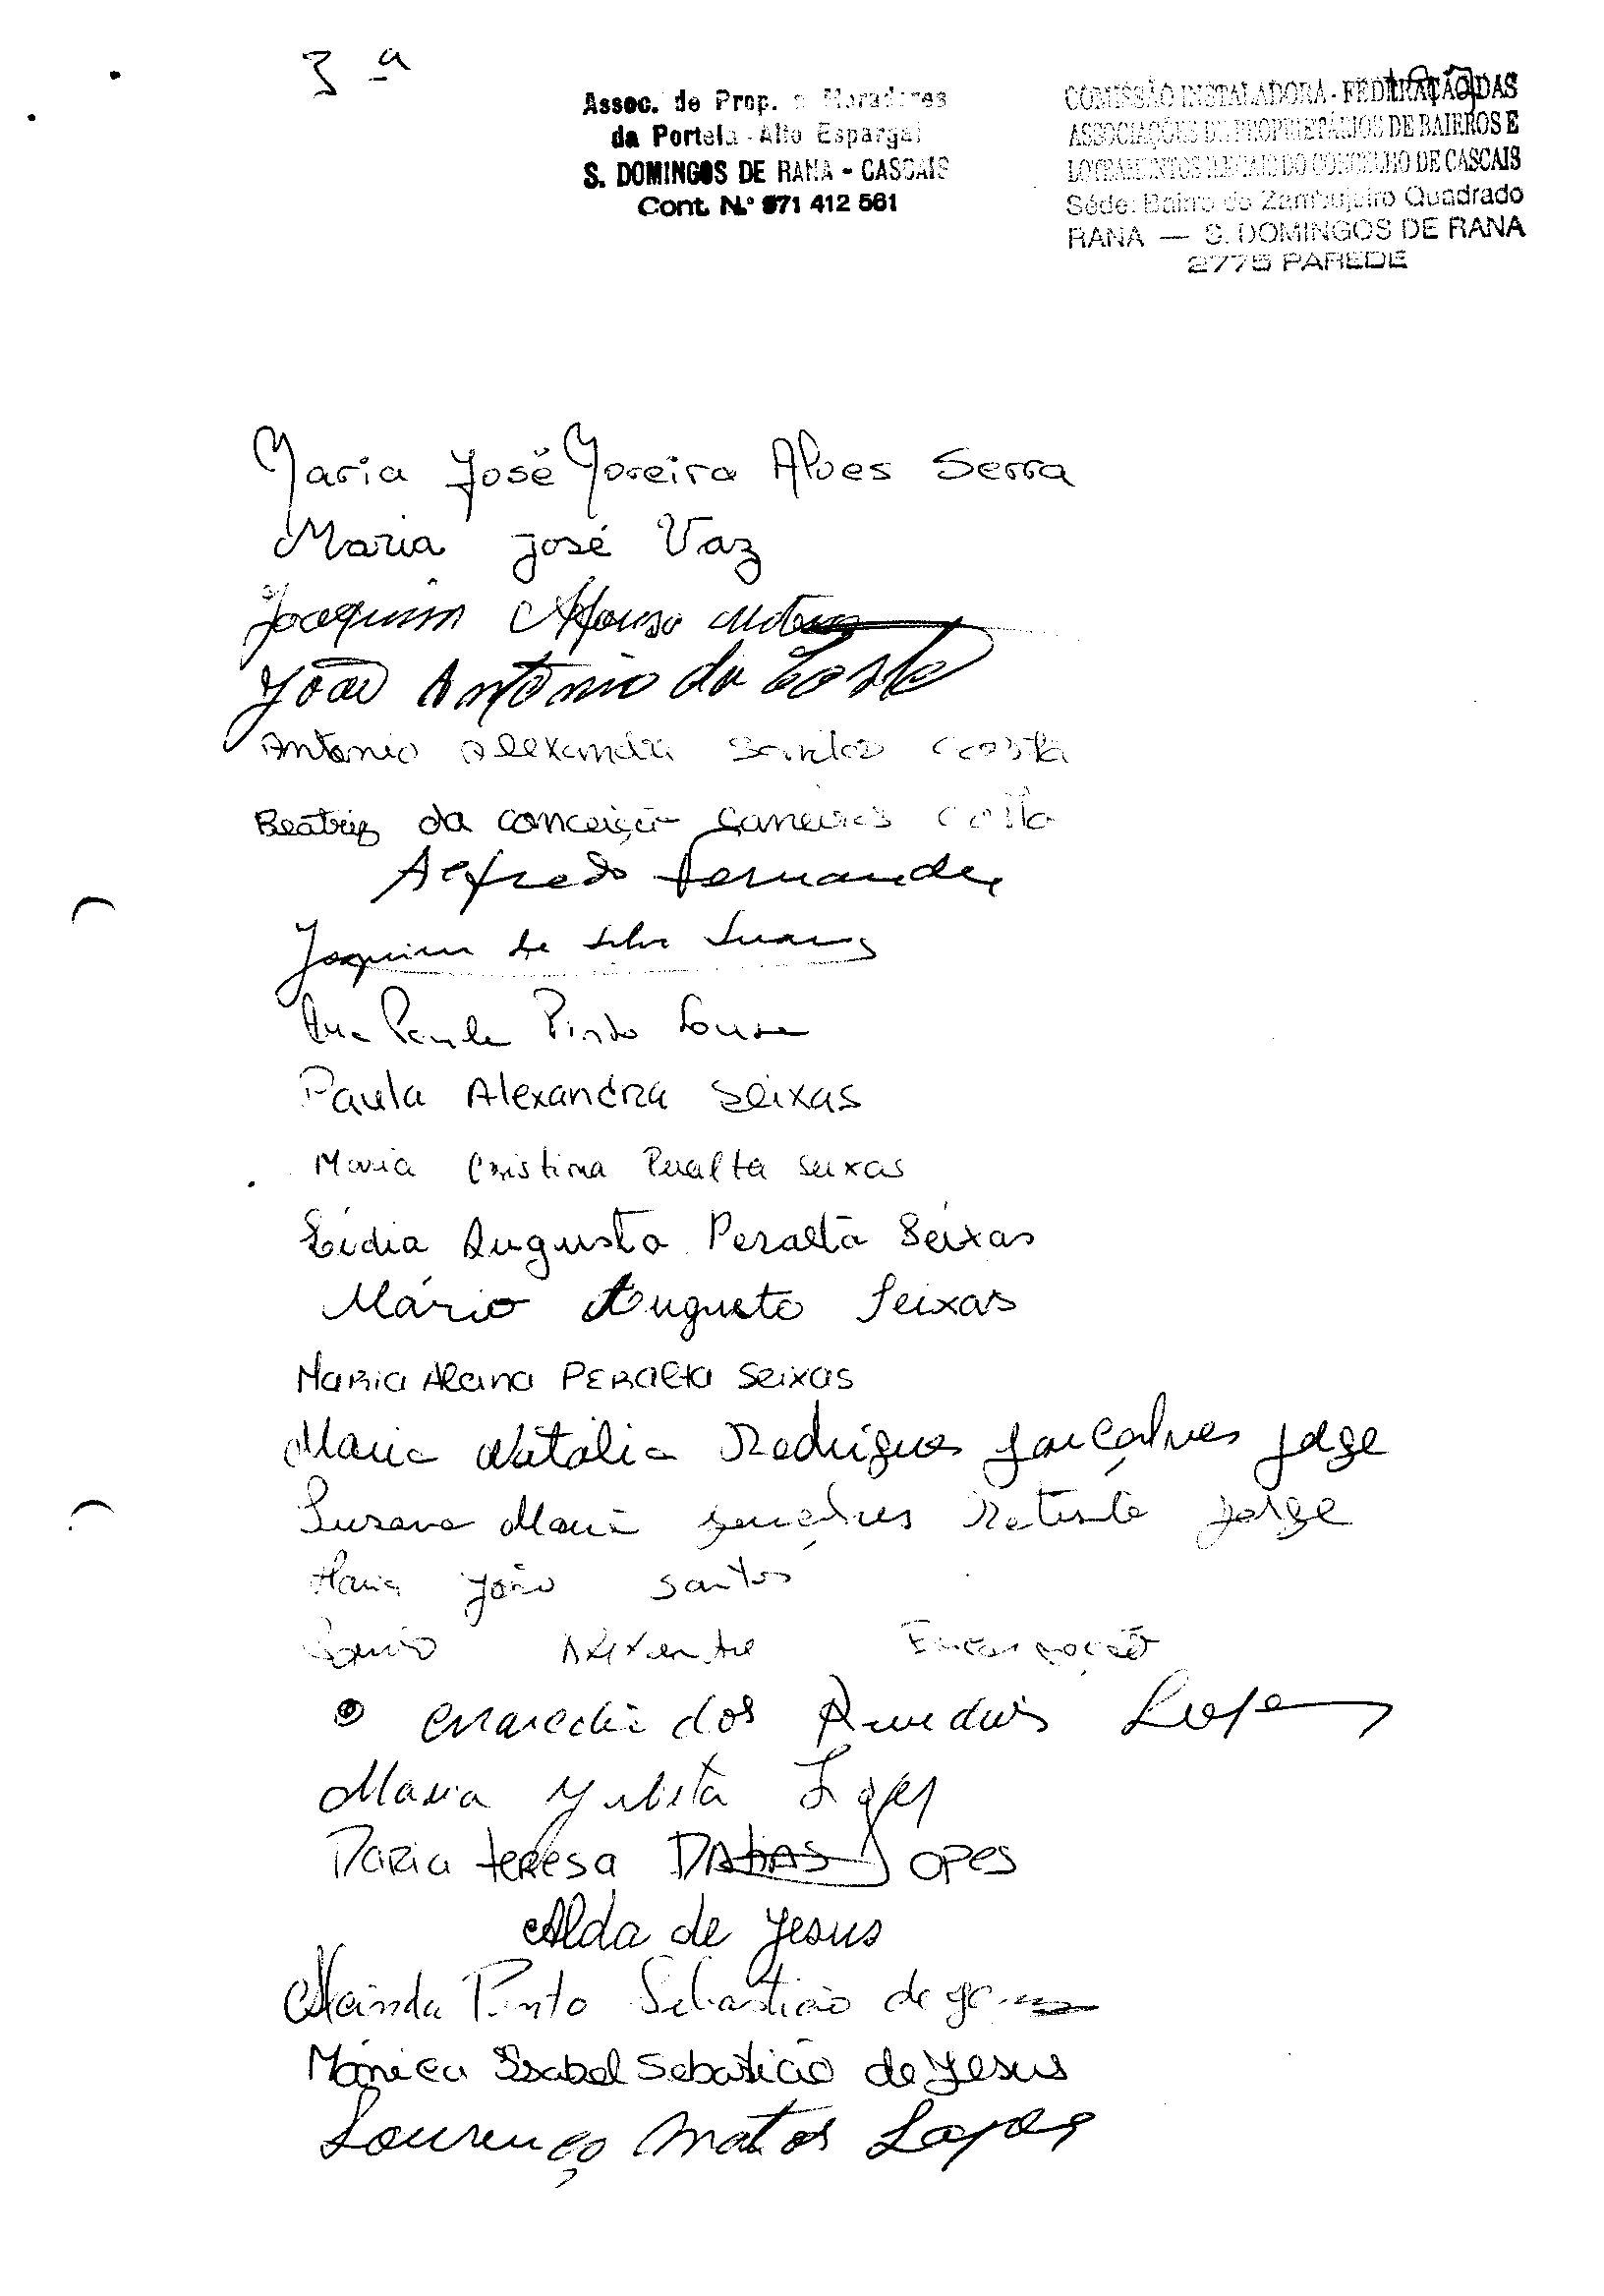 3ª
Assoc. de Prop. e Moradores
da Portela - Alto Espargal
S. DOMINGOS DE RANA - CASCAIS
Cont. N.º 971 412 561
COMISSÃO INSTALADORA - FEDERAÇÃO DAS
ASSOCIAÇÕES DE PROPRIETÁRIOS DE BAIRROS E
LOTEAMENTOS ILEGAIS DO CONCELHO DE CASCAIS
Séde: Bairro do Zambujeiro Quadrado
RANA — S. DOMINGOS DE RANA
2775 PAREDE
Maria José Moreira Alves Serra
Maria José Vaz
Joaquim Afonso
João António da Costa
Antonio Alexandre Santos Costa
Beatriz da conceição Costa
Alfredo Fernandes
Joaquim da Silva
Ana Paula Pinto Sousa
Paula Alexandra Seixas
Maria Cristina Peralta Seixas
Lidia Augusta Peralta Seixas
Mário Augusto Seixas
Maria Alcina Peralta Seixas
Maria Natália Rodrigues Gonçalves Jorge
Susana Maria Gonçalves Jorge
Maria João Santos
Alexandre Encarnação
dos Lopes
Maria Lopes
Maria Teresa Lopes
Alda de Jesus
Alcinda Pinto Sebastião de Jesus
Mónica Isabel Sebastião de Jesus
Lourenço Matos Lopes